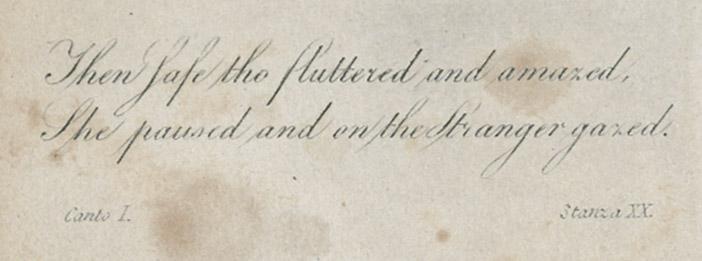 Then safe tho fluttered and amazed,
She paused and on the Stranger gazed.
Canto I. Stanza XX.